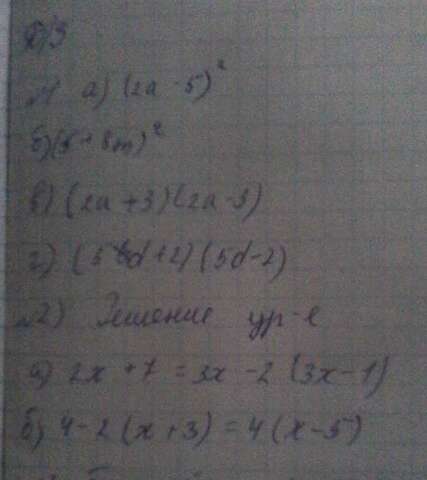 Д/З
№1 а) (2a - 5)²
б) (5 + 8m)²
в) (2a + 3) (2a - 3)
г) (5d + 2) (5d - 2)
№2) Решение ур-е
а) 2x + 7 = 3x - 2 (3x - 1)
б) 4 - 2 (x + 3) = 4 (x - 5)